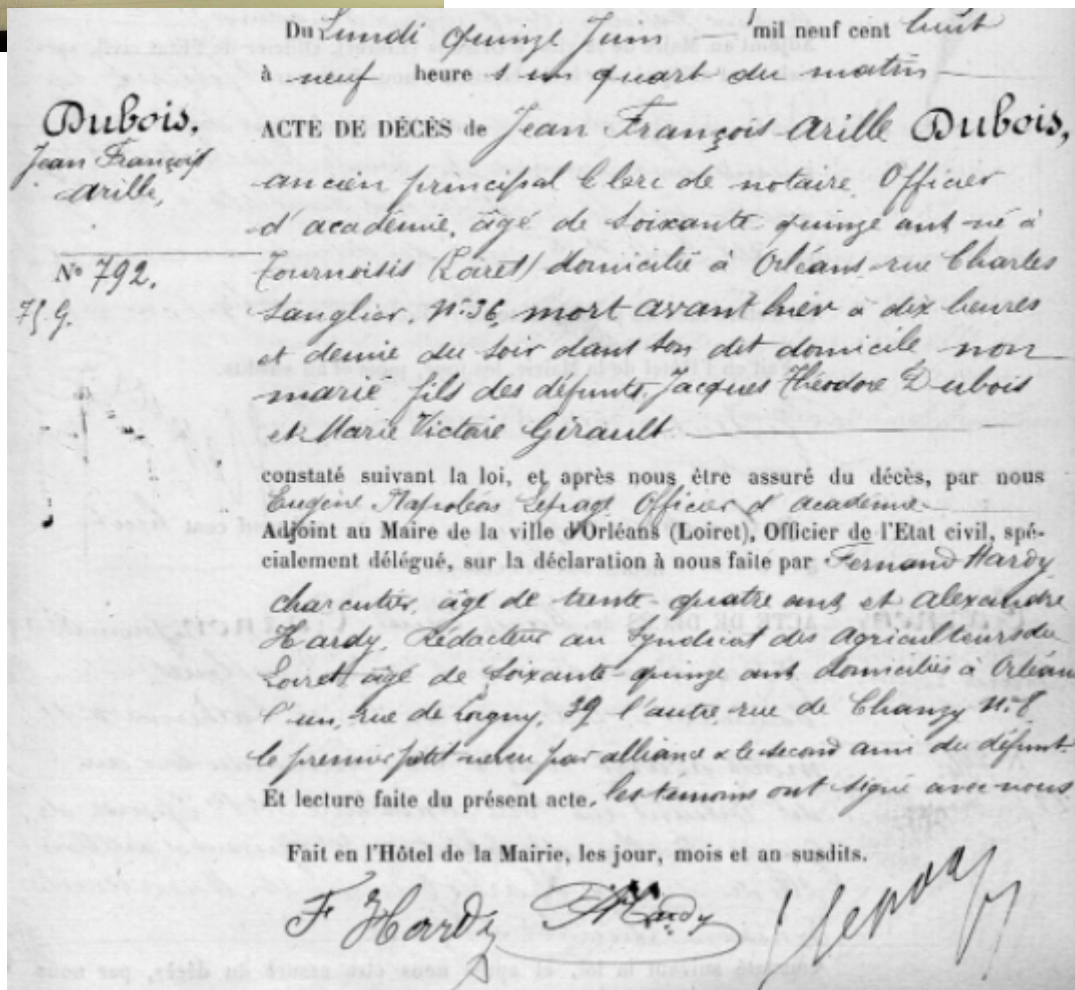 Du Lundi quinze Juin — mil neuf cent huit
à neuf heures un quart du matin
Dubois,
Jean François
Arille,
N° 792.
75 G.
ACTE DE DÉCÈS de Jean François Arille Dubois,
ancien principal Clerc de notaire Officier
d'académie, âgé de soixante quinze ans né à
Tournoisis (Loiret) domicilié à Orléans rue Charles
Sanglier, N° 36, mort avant hier à dix heures
et demie du soir dans son dit domicile non
marié fils des défunts, Jacques Théodore Dubois
et Marie Victoire Girault
constaté suivant la loi, et après nous être assuré du décès, par nous
Eugène Napoléon Lepage Officier d'académie
Adjoint au Maire de la ville d'Orléans (Loiret), Officier de l'Etat civil, spé-
cialement délégué, sur la déclaration à nous faite par Fernand Hardy
charcutier, âgé de trente-quatre ans et Alexandre
Hardy, Rédacteur au Syndicat des Agriculteurs du
Loiret âgé de soixante-quinze ans domiciliés à Orléans
l'un, rue de Loigny, 39 l'autre rue de Chanzy N° 8
le premier petit-neveu par alliance & le second ami du défunt.
Et lecture faite du présent acte, les témoins ont signé avec nous
Fait en l'Hôtel de la Mairie, les jour, mois et an susdits.
F Hardy Hardy Lepage